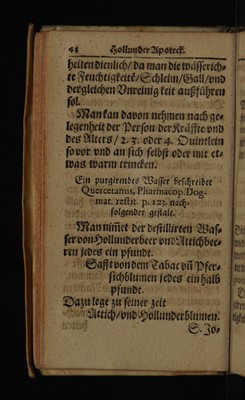 44 Hollunder Apoteck.
heiten dienlich / da man die wässerich-
te Feuchtigkeitē / Schleim / Gall / vnd
dergleichen Vnreinigkeit außführen
sol.
Man kan davon nehmen nach ge-
legenheit der Person der Kräffte vnd
des Alters / 2. 3. oder 4. Quintlein
so vor vnd an sich selbst oder mit et-
was warm trincken.
Ein purgirendes Wasser beschreibet
Quercetanus, Pharmacop. Dog-
mat. restit. p. 123. nach-
folgender gestalt.
Man nim̃et der destillirten Was-
ser von Hollunderbeer vn̄ Attichbee-
ren jedes ein pfundt.
Safft von dem Tabac vn̄ Pfer-
sichblumen jedes ein halb
pfundt.
Dazu lege zu seiner zeit
Attich / vnd Hollunderblumen.
S. Jo-